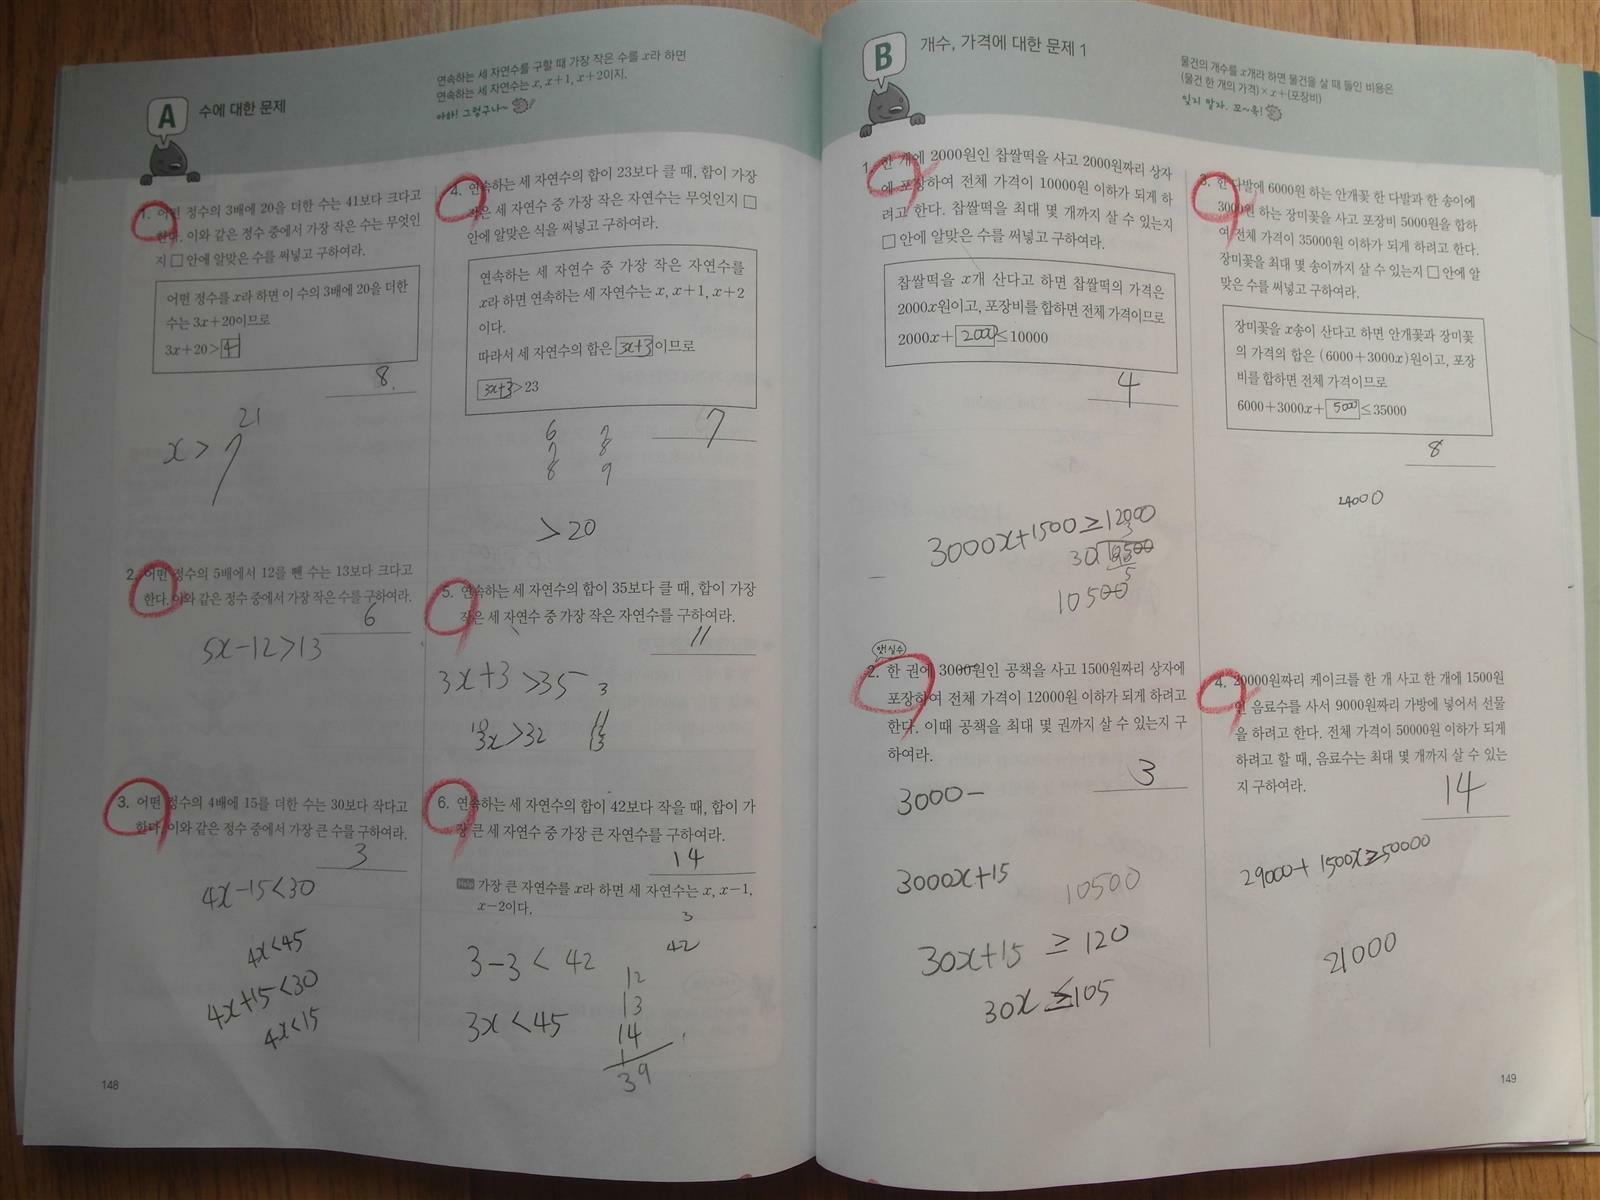 A
수에 대한 문제
연속하는 세 자연수를 구할 때 가장 작은 수를 x라 하면
연속하는 세 자연수는 x, x+1, x+2이지.
아하! 그렇구나~
1. 어떤 정수의 3배에 20을 더한 수는 41보다 크다고
한다. 이와 같은 정수 중에서 가장 작은 수는 무엇인
지 □ 안에 알맞은 수를 써넣고 구하여라.
어떤 정수를 x라 하면 이 수의 3배에 20을 더한
수는 3x+20이므로
3x+20>
8.
21
x > 7
2. 어떤 정수의 5배에서 12를 뺀 수는 13보다 크다고
한다. 이와 같은 정수 중에서 가장 작은 수를 구하여라.
6
5x-12>13
3. 어떤 정수의 4배에 15를 더한 수는 30보다 작다고
한다. 이와 같은 정수 중에서 가장 큰 수를 구하여라.
3
4x-15<30
4x<45
4x+15<30
4x<15
148
4. 연속하는 세 자연수의 합이 23보다 클 때, 합이 가장
작은 세 자연수 중 가장 작은 자연수는 무엇인지 □
안에 알맞은 식을 써넣고 구하여라.
연속하는 세 자연수 중 가장 작은 자연수를
x라 하면 연속하는 세 자연수는 x, x+1, x+2
이다.
따라서 세 자연수의 합은 3x+3 이므로
3x+3 >23
7
6 7
7 8
8 9
>20
5. 연속하는 세 자연수의 합이 35보다 클 때, 합이 가장
작은 세 자연수 중 가장 작은 자연수를 구하여라.
11
3x+3 >35
3
3x>32
11
12
13
6. 연속하는 세 자연수의 합이 42보다 작을 때, 합이 가
장 큰 세 자연수 중 가장 큰 자연수를 구하여라.
14
Help 가장 큰 자연수를 x라 하면 세 자연수는 x, x-1,
x-2이다.
3
42
3-3 < 42
12
13
3x <45
14
39
B
개수, 가격에 대한 문제 1
물건의 개수를 x개라 하면 물건을 살 때 들인 비용은
(물건 한 개의 가격)×x+(포장비)
잊지 말자. 꼬~옥!
1. 한 개에 2000원인 찹쌀떡을 사고 2000원짜리 상자
에 포장하여 전체 가격이 10000원 이하가 되게 하
려고 한다. 찹쌀떡을 최대 몇 개까지 살 수 있는지
□ 안에 알맞은 수를 써넣고 구하여라.
찹쌀떡을 x개 산다고 하면 찹쌀떡의 가격은
2000x원이고, 포장비를 합하면 전체 가격이므로
2000x+ 2000 ≤10000
4
3000x+1500≥12000
3
30 10500
5
10500
앗!실수
2. 한 권에 3000원인 공책을 사고 1500원짜리 상자에
포장하여 전체 가격이 12000원 이하가 되게 하려고
한다. 이때 공책을 최대 몇 권까지 살 수 있는지 구
하여라.
3
3000-
3000x+15
10500
30x+15 ≥ 120
30x ≤105
3. 한 다발에 6000원 하는 안개꽃 한 다발과 한 송이에
3000원 하는 장미꽃을 사고 포장비 5000원을 합하
여 전체 가격이 35000원 이하가 되게 하려고 한다.
장미꽃을 최대 몇 송이까지 살 수 있는지 □ 안에 알
맞은 수를 써넣고 구하여라.
장미꽃을 x송이 산다고 하면 안개꽃과 장미꽃
의 가격의 합은 (6000+3000x)원이고, 포장
비를 합하면 전체 가격이므로
6000+3000x+ 5000 ≤35000
8
24000
4. 20000원짜리 케이크를 한 개 사고 한 개에 1500원
인 음료수를 사서 9000원짜리 가방에 넣어서 선물
을 하려고 한다. 전체 가격이 50000원 이하가 되게
하려고 할 때, 음료수는 최대 몇 개까지 살 수 있는
지 구하여라.
14
29000+ 1500x≥50000
21000
149